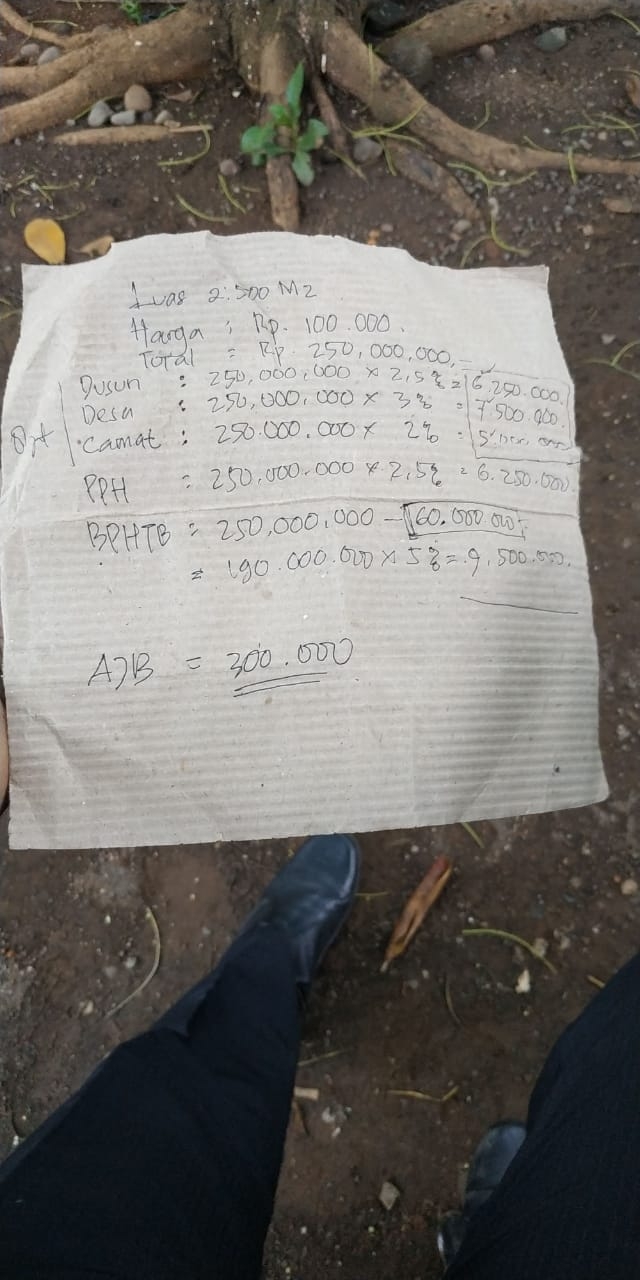 Luas 2.500 M2
Harga : Rp. 100.000.
Total = Rp. 250,000,000,=
Dusun : 250,000,000 x 2,5% = 6.250.000.
Desa : 250,000,000 x 3% = 7.500.000.
Camat : 250.000.000 x 2% = 5.000.000
PPH = 250,000.000 x 2,5% = 6.250.000.
BPHTB = 250,000,000 - 60.000.000,
= 190.000.000 x 5% = 9,500.000.
AJB = 300.000